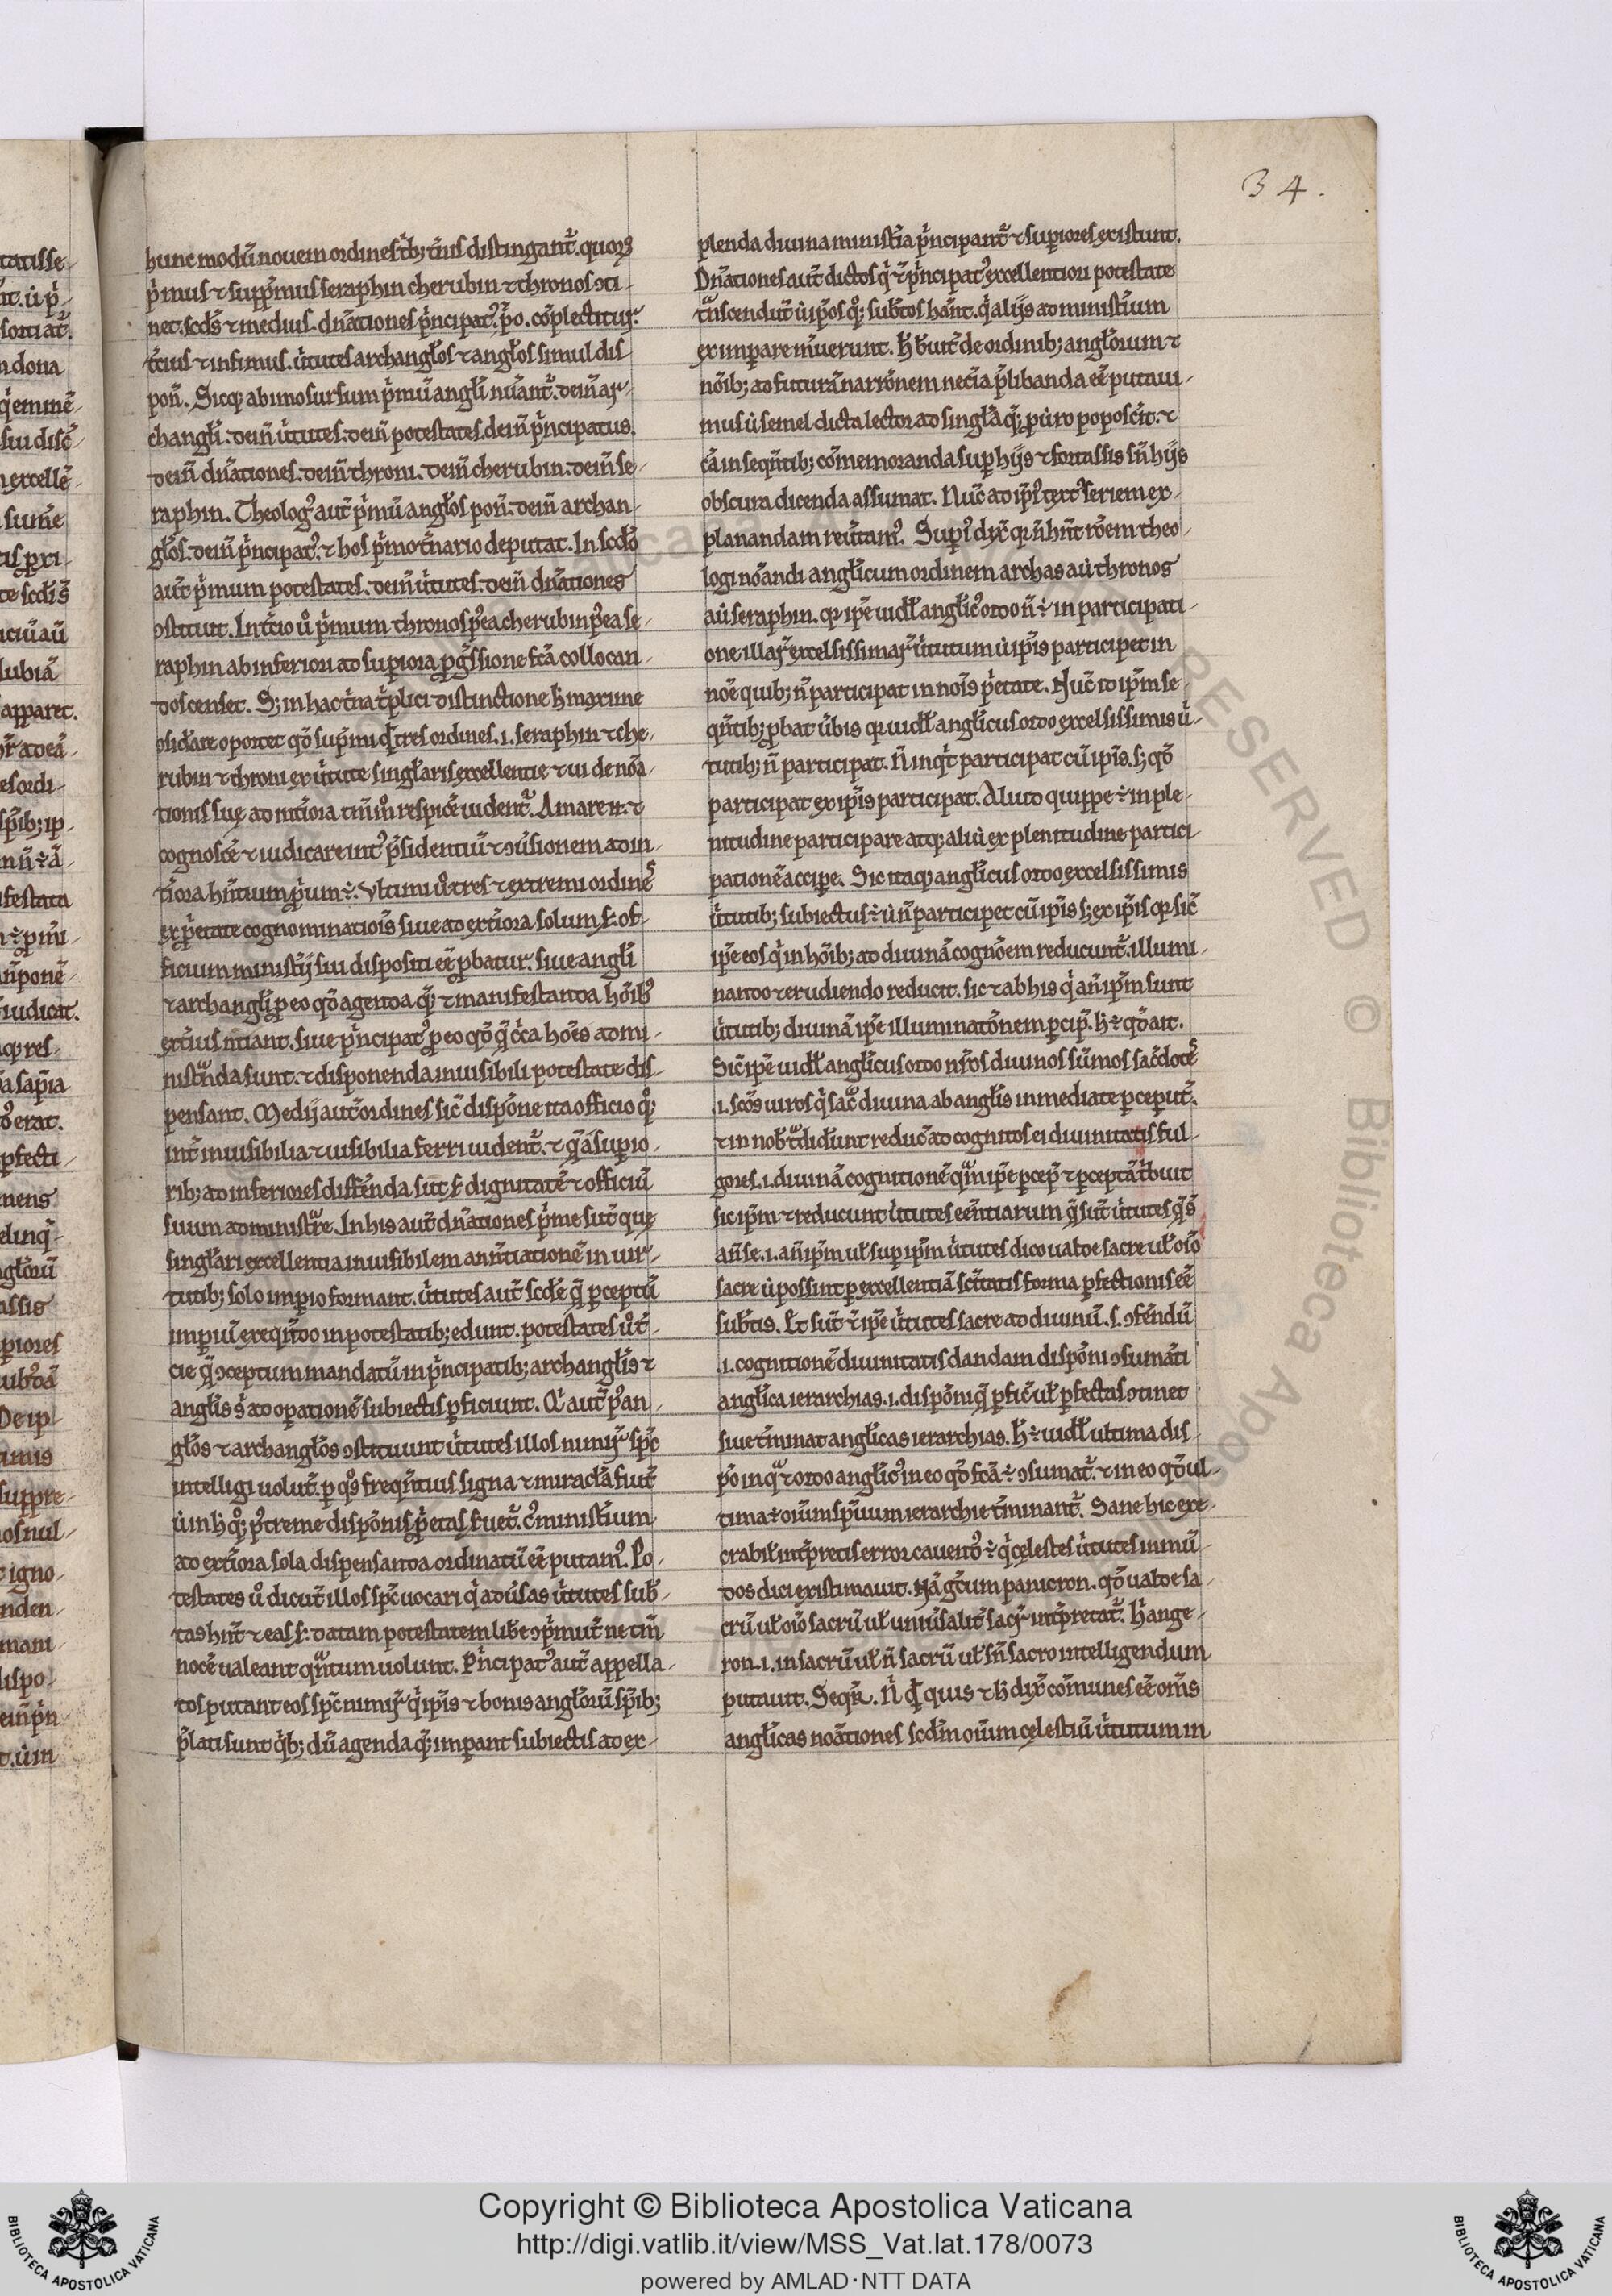 34.
hunc modū nouem ordines tⁱb; t̄nis distingant᷑. quoꝝ
pⁱmus ⁊ supp̄mus seraphin cherubin ⁊ thronos ꝯti-
net. scd̄s ⁊ medius. dn̄ationes pⁱncipatꝰ. p̄o. cōplectitur.
t̄cius ⁊ infimus. uⁱtutes archangl̄os ⁊ angl̄os simul dis-
pon̄. Sicq; ab imo sursum pⁱmū angl̄i nūant᷑. dein̄ ar-
changl̄i. dein̄ uⁱtutes. dein̄ potestates. dein̄ pⁱncipatus.
dein̄ dn̄ationes. dein̄ throni. dein̄ cherubin. dein̄ se-
raphin. Theologꝰ aut̄ pⁱmū angl̄os pon̄. dein̄ archan-
gl̄os. dein̄ pⁱncipatꝰ. ⁊ hos pⁱmo t̄nario deputat. In scd̄o
aut̄ pⁱmum potestates. dein̄ uⁱtutes. dein̄ dn̄ationes
ꝯstituit. In t̄cio ů pⁱmum thronos p̄ea cherubin p̄ea se-
raphin ab inferiori ad supiora ꝓḡssione fc̄a collocan-
dos censet. S; in hac t̄na tⁱplici distinctione h̄ maxime
ꝯsid̄are oportet qd̄ sup̄mi q̄ tres ordines .i. seraphin ⁊ che-
rubin ⁊ throni ex uⁱtute singl̄aris excellentie ⁊ ui denōa-
tionis sue ad int̄iora tm̄m̊ respicē uident᷑. Amare n̄. ⁊
cognosce ⁊ iudicare intꝰ p̄sidentiū ⁊ ꝯūsionem ad in-
t̄iora hn̄tium ꝓpⁱum ÷. Vltimi ů tres ⁊ extremi ordinēs
ex ꝓp̄etate cognominatiois̄ siue ad ext̄iora solum s̄. of-
ficium minist̄ij sui dispositi eē ꝓbatur. siue angl̄i
⁊ archangl̄i ꝑ eo qd̄ agenda q̄; ⁊ manifestanda hōib;
ext̄ius nt̄iant. siue pⁱncipatꝰ ꝑ eo qd̄ q̄ cⁱca hoēs admi-
nist̄nda sunt. ⁊ disponenda inuisibili potestate dis-
pensant. Medij aut̄ ordines sic̄ dispōne ita officio q̊;
int̄ inuisibilia ⁊ uisibilia ferri uident᷑. ⁊ q̄ a supio-
rib; ad inferiores diffēnda sūt s̄. dignitatē ⁊ officiū
suum administ̄re. In his aut̄ dn̄ationes pⁱme sūt que
singl̄ari excellentia inuisibilem ann̄tiationē in uir-
tutib; solo imperio formant. uⁱtutes aut̄ scd̄e q̄ ꝑceptū
imꝑiū exeqn̄do in potestatib; edunt. potestates ů t̄-
cie q̄ ꝯceptum mandatū in pⁱncipatib; archangl̄is ⁊
angl̄is s̄ ad oꝑationē subiectis ꝑficiunt. Qⁱ aut̄ p̄ an-
gl̄os ⁊ archangl̄os ꝯstituunt uⁱtutes illos nimiꝝ sp̄c
intelligi uolūt. ꝑ qͦs freqn̄tius signa ⁊ miracl̄a fiūt
ad ext̄iora sola dispensanda ordinatū eē putamꝰ. Po-
testates ů dicūt illos sp̄c uocari qⁱ adūsas uⁱtutes sub-
tas hn̄t ⁊ eas s̄. datam potestatem lib̄e ꝯpⁱmūt ne tm̄
nocē ualeant qⁿtum uolunt. Pⁱncipatꝰ aut̄ appella-
tos putant eos sp̄c nimiꝝ qⁱ ip̄is ⁊ bonis angl̄oꝝ sp̄ib;
p̄lati sunt qⁱb; dū agenda q̄; imꝑant subiectis ad ex-
plenda diuina minist̄ia pⁱncipant᷑ ⁊ supiores existunt.
Dn̄ationes aut̄ dictos qⁱ ⁊ pⁱncipatꝰ excellentiori potestate
tⁿscendūt ù ip̄os q̊; subtos hānt. qⁱ alijs ad minist̄ium
ex imꝑare mūerunt. H̄ bⁱuit̄ de ordinib; angl̄orum ⁊
nōib; ad futurā narrōnem necīa p̄libanda eē putaui-
mus ù semel dicta lector ad singl̄a q̄; ꝓ ùro poposc̄it. ⁊
cā in seqn̄tib; cōmemoranda suꝑ hijs ⁊ fortassis sn̄ hijs
obscura dicenda assumat. Nūc ad ip̄iꝰ textꝰ seriem ex-
planandam reūtamꝰ. Supiꝰ dyc̄ qꝛ n̄ hn̄t rōem theo-
logi nōandi angl̄icum ordinem archas aù thronos
aù seraphin. qꝛ ip̄e uidł angl̄icꝰ ordo n̄ ÷ in participati-
one illaꝝ excelsissimaꝝ uⁱtutum ù ip̄is participet in
noē quib; n̄ participat in nois̄ ꝓp̄etate. Nūc id ip̄m se-
qn̄tib; ꝓbat ūbis qꝛ uidł angl̄icus ordo excelsissimis uⁱ-
tutib; n̄ participat. N̄ inqⁱt participat cū ip̄is. s; qd̄
participat ex ip̄is participat. Aliud quippe ÷ in ple-
nitudine participare atq; aliù ex plenitudine partici-
pationē accipe. Sic itaq; angl̄icus ordo excelsissimis
uⁱtutib; subiectus ÷ ù n̄ participet cū ip̄is s; ex ip̄is qꝛ sic̄
ip̄e eos qⁱ in hōib; ad diuinā cognōem reducunt᷑. illumi-
nando ⁊ erudiendo reducit. sic ⁊ ab his qⁱ an̄ ip̄m sunt
uⁱtutib; diuinā ip̄e illuminatōnem ꝑcip̄. h̄ ÷ qd̄ ait.
Sic̄ ip̄e uidł angl̄icus ordo nr̄os diuinos sūmos sac̄dotes
.i. scōs uiros qⁱ sac̄ diuina ab angl̄is inmediate ꝑceput̄.
⁊ in nob̄ tⁿdid̄unt reduc̄ ad cognitos ei diuinitatis ful-
gores .i. diuinā cognitionē q̄m ip̄e ꝑcep̄ ⁊ ꝑceptā tⁱbuit
sic ip̄m ⁊ reducunt uⁱtutes eēntiarum q̄ sūt uⁱtutes q̄ s̄
an̄ se .i. an̄ ip̄m ul̄ suꝑ ip̄m uⁱtutes dico ualde sacre ul̄ oīo
sacre ù possint ꝑ excellentiā sc̄itatis forma ꝑfectionis eē
subt̄is. Et sūt ⁊ ip̄e uⁱtutes sacre ad diuinū .s. ꝯfēndū
.i. cognitionē diuinitatis dandam dispōni ꝯsumāti
angl̄ica ierarchias .i. dispōni q̄ ꝑfic̄ ul̄ ꝑfectas ꝯtinet
siue t̄minat angl̄icas ierarchias. h̄ ÷ uidł ultima dis-
pō in q̄ ⁊ ordo angl̄icꝰ in eo qd̄ fc̄a ÷ ꝯsumat᷑. ⁊ in eo qd̄ ul-
tima ÷ oīum sp̄uum ierarchie t̄minant᷑. Sane hic exe-
crabil̄ int̄p̄retis error cauendꝰ ÷ qⁱ celestes uⁱtutes inmū-
dos dici existimauit. Nā gⁱcum panieron. qd̄ ualde sa-
crū ul̄ oīo sacrū ul̄ uniūsalit̄ sacꝝ int̄p̄retat᷑. h̄ ange-
ron .i. in sacrū ul̄ n̄ sacrū ul̄ sn̄ sacro intelligendum
putauit. Seqr̄. N̄ q̄ quis ⁊ h̄ dix̄ cōmunes eē om̄s
angl̄icas noātiones scd̄m oīum celestiū uⁱtutum in
Copyright © Biblioteca Apostolica Vaticana
http://digi.vatlib.it/view/MSS_Vat.lat.178/0073
powered by AMLAD·NTT DATA
BIBLIOTECA APOSTOLICA VATICANA
BIBLIOTECA APOSTOLICA VATICANA